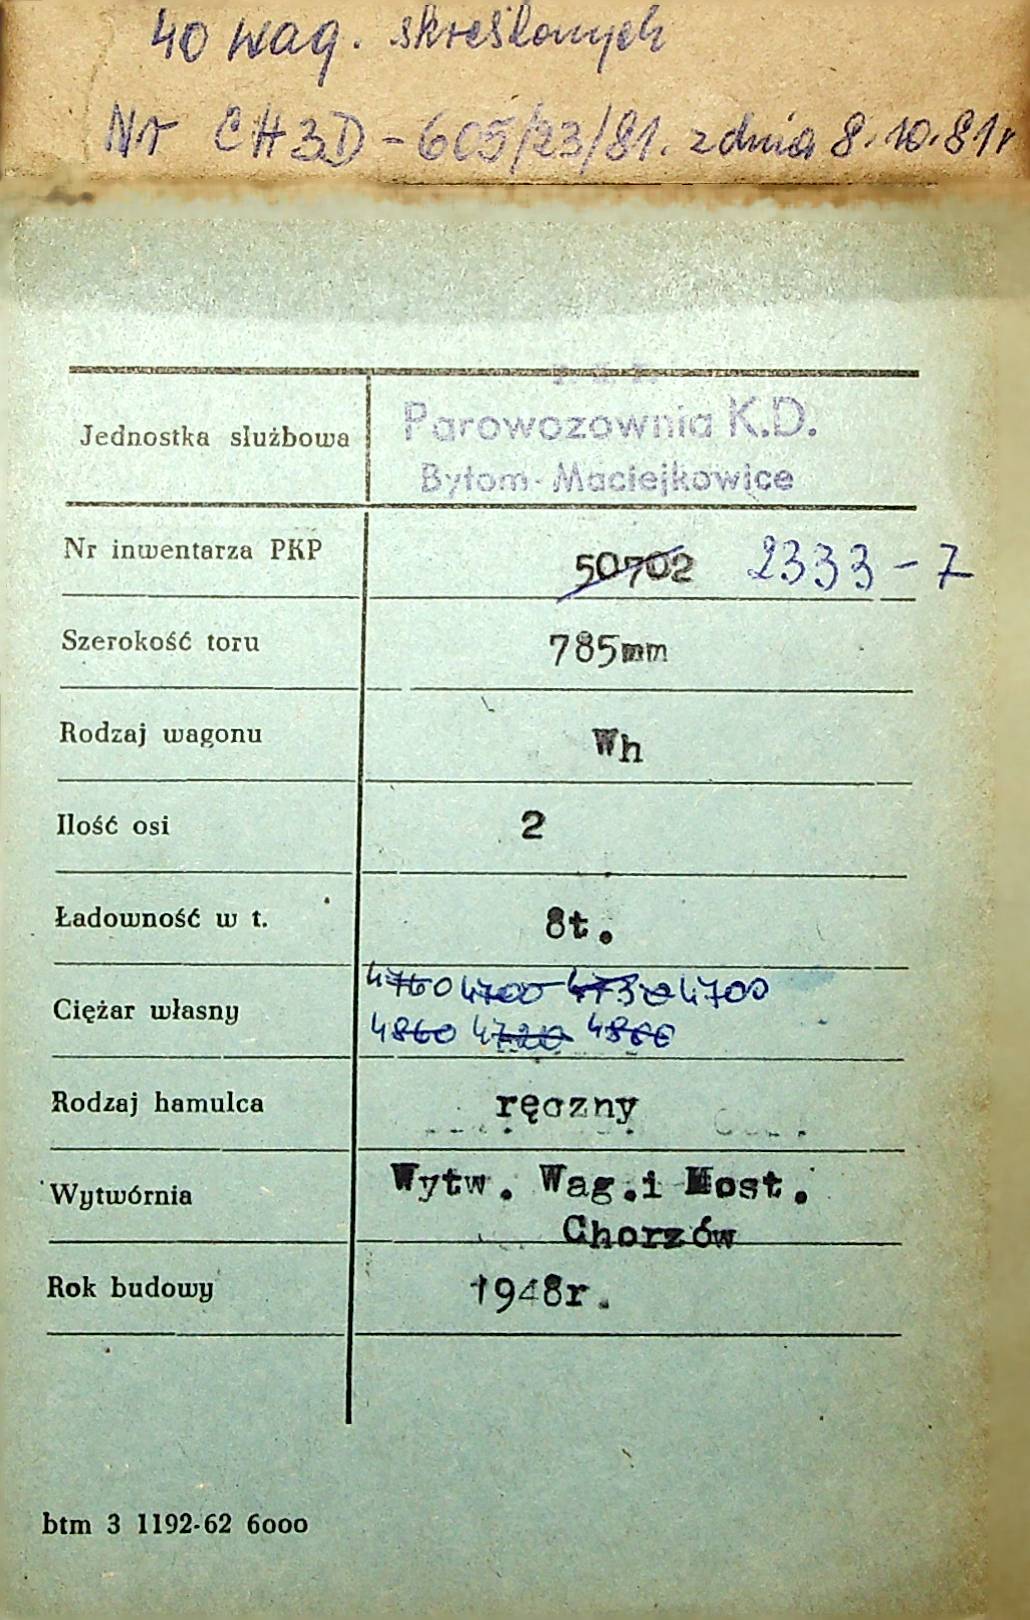 40 wag. skreślonych
Nr CH3D-605/23/81. z dnia 8.10.81r
Jednostka służbowa Parowozownia K.D.
Bytom-Maciejkowice
Nr inwentarza PKP 50702 2333-7
Szerokość toru 785mm
Rodzaj wagonu Wh
Ilość osi 2
Ładowność w t. 8t.
Ciężar własny 4760 4700 4730 4700
4860 4720 4866
Rodzaj hamulca ręczny
Wytwórnia Wytw. Wag.i Most.
Chorzów
Rok budowy 1948r.
btm 3 1192-62 6000